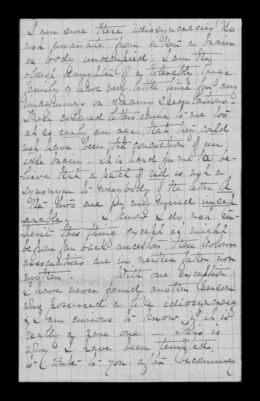 I am sure these idiosyncrasies do
not emanate from either a brain
or body unoccupied. I am the
oldest daughter of a tolerably large
family & have very little time for any
imaginings or dreamy speculations.
These colored letters came to me too
at so early an age that they could
not have been the concoction of an
idle brain. It is hard for me to be-
lieve that a patch of red is not a
synonym to everybody of the letter
The two are in my mind insep-
arable. I know I do not in-
herit this thing except it might
be from far back ancestors, these colour
associations are in neither father nor
mother. With one exception
I have never found another person
who possessed a like idiosyncrasy
& I am curious to know if it is
really a rare one — This is
why I have been tempted
to write to you after becoming